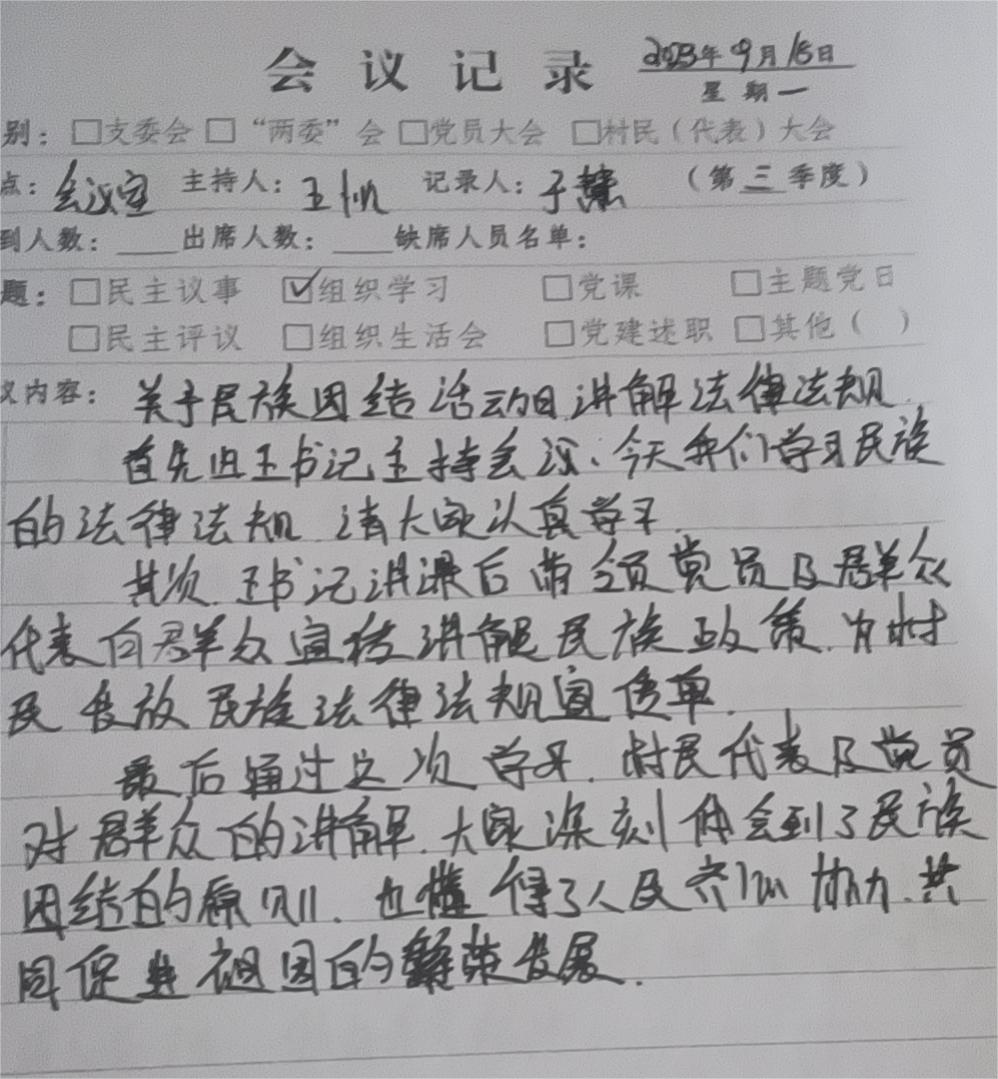 会议记录 2023年9月18日
星期一
别：□支委会 □“两委”会 □党员大会 □村民（代表）大会
点：会议室 主持人：王帆 记录人：于慧 （第三季度）
到人数：____出席人数：____缺席人员名单：
题：□民主议事 ☑组织学习 □党课 □主题党日
□民主评议 □组织生活会 □党建述职 □其他（ ）
议内容：关于民族团结活动日讲解法律法规.
首先由王书记主持会议、今天我们学习民族
的法律法规.请大家认真学习.
其次.王书记讲课后带领党员及群众
代表向群众宣传讲解民族政策.为村
民发放民族法律法规宣传单.
最后通过这次学习.村民代表及党员
对群众的讲解.大家深刻体会到了民族
团结的原则.也懂得了人民齐心协力.共
同促进祖国的繁荣发展.